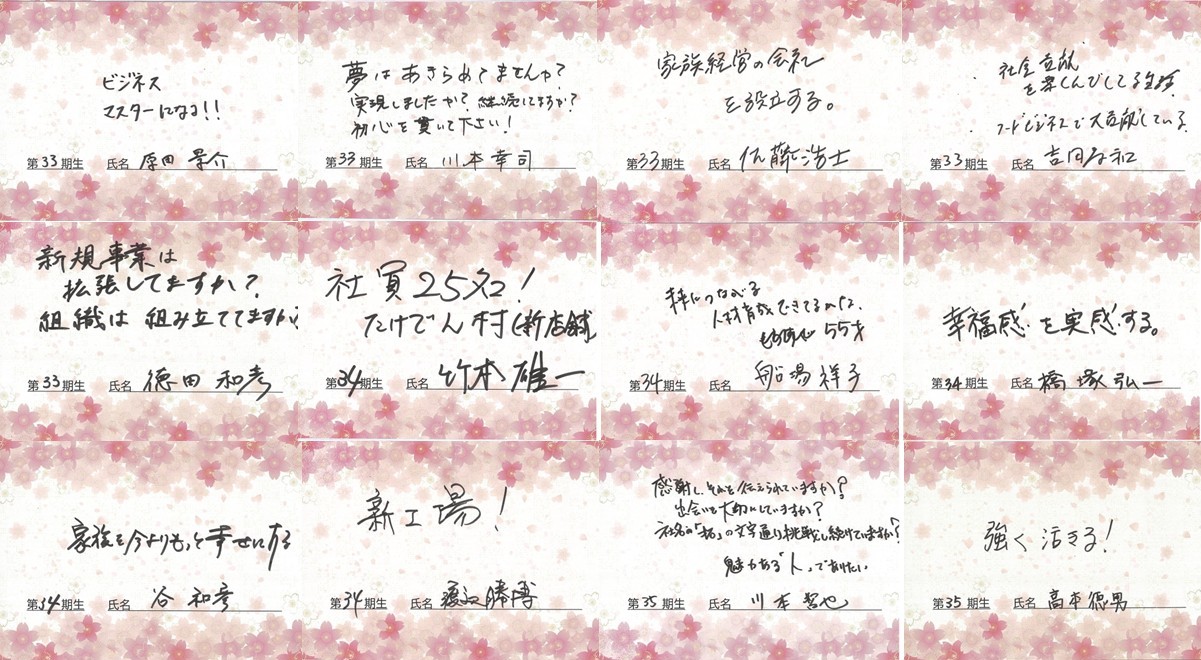 ビジネス
マスターになる!!
第33期生 氏名 原田 景介
夢はあきらめてませんか?
実現しましたか?継続してますか?
初心を貫いて下さい!
第33期生 氏名 川本幸司
家族経営の会社
を設立する。
第33期生 氏名 佐藤浩士
社会貢献
を楽しんでしてる
フードビジネスで大貢献している
第33期生 氏名
新規事業は
拡張してますか?
組織は 組み立ててますか?
第33期生 氏名 徳田 和彦
社員25名!
たけでん村(新店舗)
第34期生 氏名 竹本雄一
未来につながる
人材育成できてるかな
55才
第34期生 氏名 船場祥子
幸福感を実感する。
第34期生 氏名 橋塚弘一
家族を今よりもっと幸せにする
第34期生 氏名 谷 和彦
新工場!
第34期生 氏名 渡辺勝博
感謝し、それを伝えられていますか?
出会いを大切にしていますか?
社名の「拓」の文字通り挑戦し続けていますか?
魅力ある「人」でありたい
第35期生 氏名 川本哲也
強く活きる!
第35期生 氏名 高本徳男